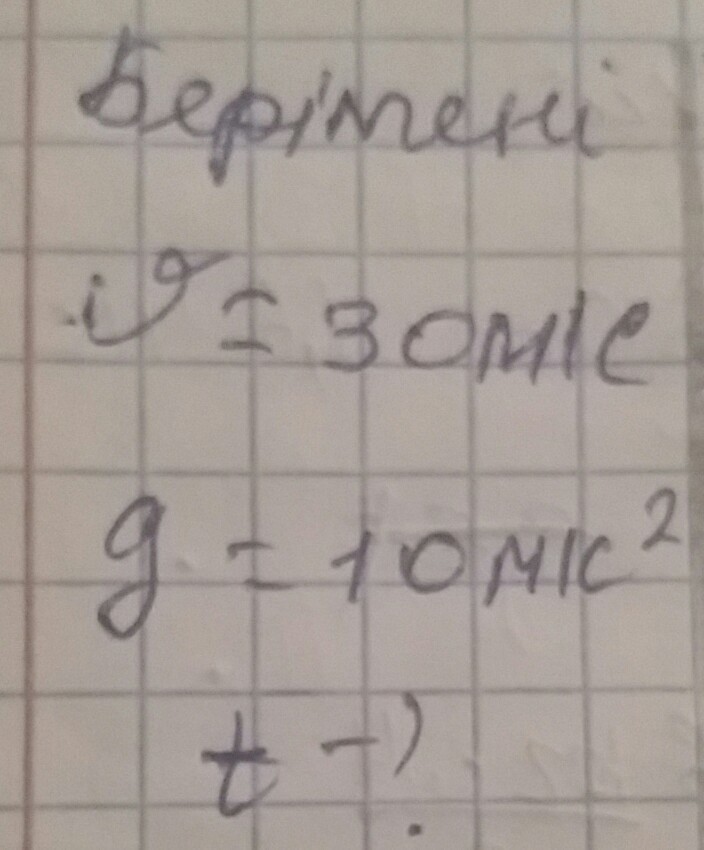 Берілгені
υ = 30 м/с
g = 10 м/с²
t - ?